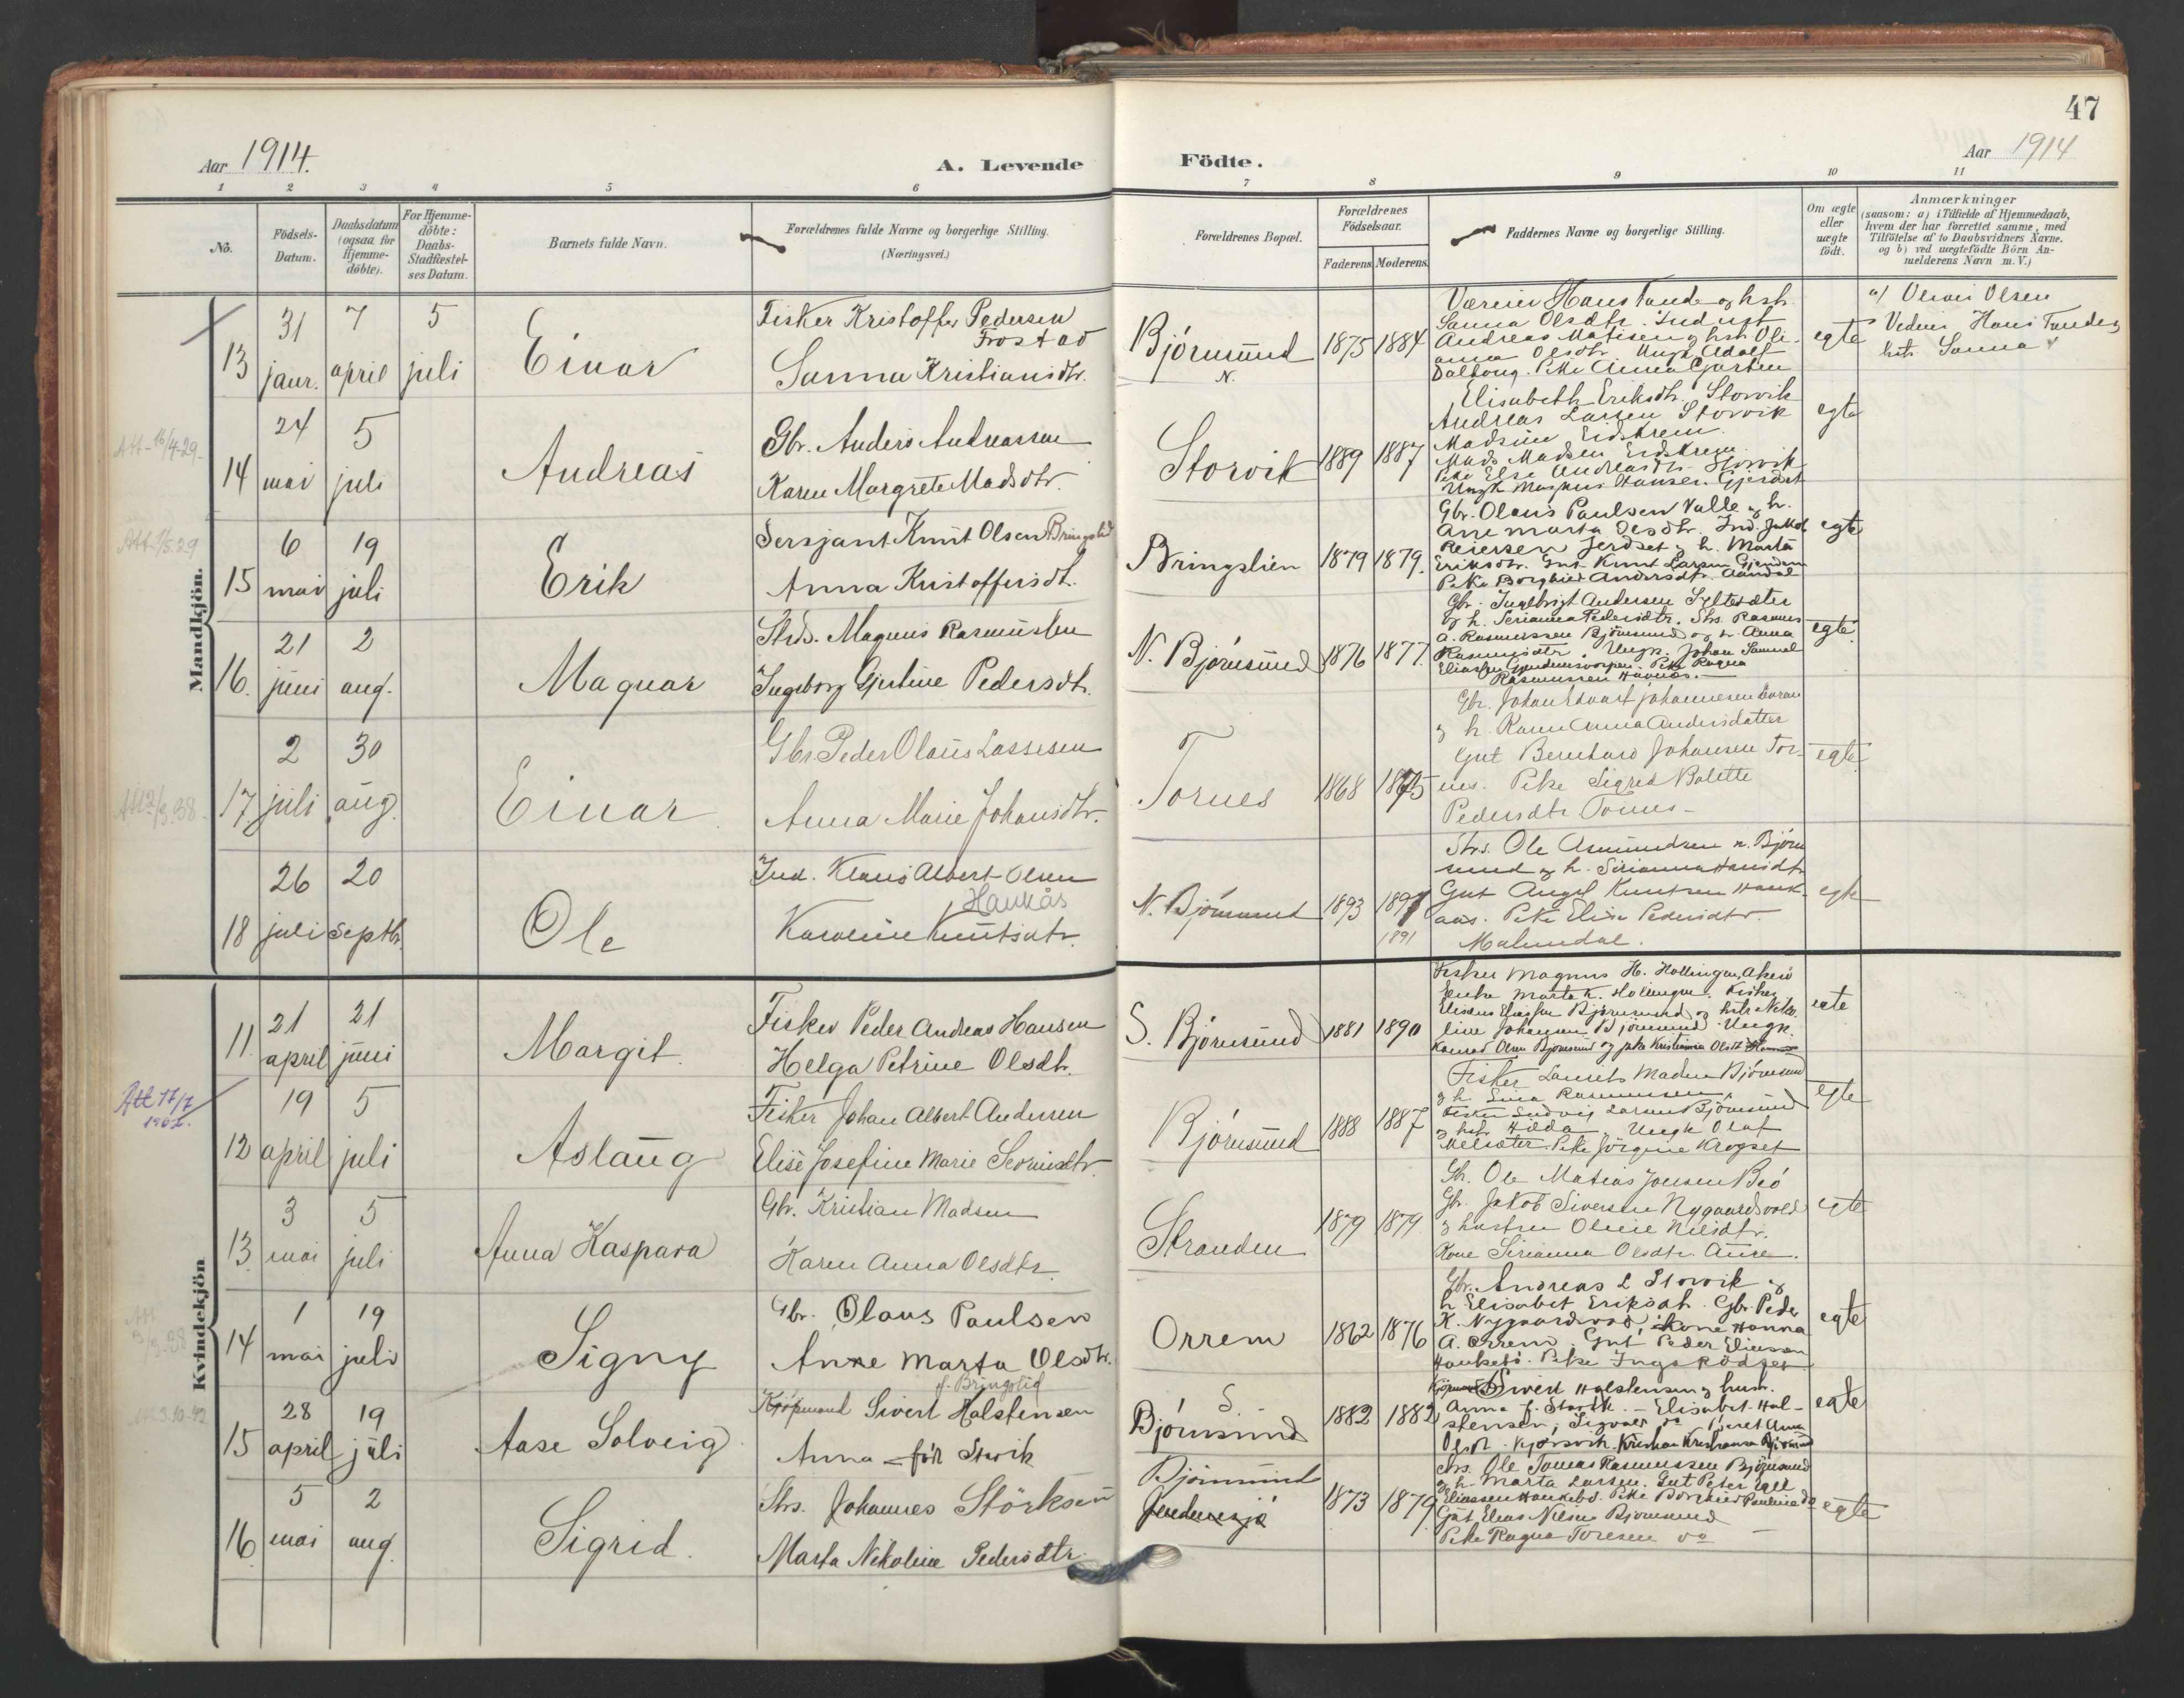 47
Aar 1914.
A. Levende
Födte.
Aar 1914
1 2 3 4 5 6 7 8 9 10 11
No.
Födsels-
Datum.
Daabsdatum
(ogsaa for
Hjemme-
döbte).
For Hjemme-
döbte:
Daabs-
Stadfæstel-
ses Datum.
Barnets fulde Navn.
Forældrenes fulde Navne og borgerlige Stilling.
(Næringsvei.)
Forældrenes Bopæl.
Forældrenes
Födselsaar.
Faderens Moderens
Faddernes Navne og borgerlige Stilling.
Om ægte
eller
uægte
födt.
Anmærkninger
(saasom: a) i Tilfælde af Hjemmedaab,
hvem der har forrettet samme, med
Tilföielse af to Daabsvidners Navne.
og b) ved uægtefödte Börn An-
melderens Navn m. V.)
Mandkjön.
13
31
janr.
7
april
5
juli
Einar
Fisker Kristoffer Pedersen
Frostad
Sanna Kristiansdtr.
Björnsund
N.
1875 1884
Hans Tande og hstr.
Sanna Olsdtr.
Andreas Matisen og hstr. Oli-
anna Olsdtr. Ungk. Adolf
Pike Anna
egte
a/ Olsen
Hans Tande og
hstr. Sanna
Att 16/4-29.
14
24
mai
5
juli
Andreas
Gbr. Anders Andreassen
Karen Margrete Madsdtr.
Storvik
1889 1887
Elisabeth Eriksdtr. Storvik
Andreas Larsen Storvik
Madsine Eidskrem.
Mads Madsen Eidskrem
Pike Else Andreasdtr. Storvik
Ungk Magnus Hansen
egte
15
6
mai
19
juli
Erik
Sersjant Knut Olsen Bringslid
Anna Kristoffersdt.
Bringslien
1879 1879.
Gbr. Olaus Paulsen Valle og h.
Ane Marta Olsdtr. Ind. Jakob
Reiersen og h. Marta
Eriksdtr. Gut Knut Larsen Gjendem
Pike Borghild Andersdtr.
egte
16.
21
juni
2
aug.
Magnar
Strs. Magnus Rasmussen
Ingeborg Gjertine Pedersdtr.
N. Björnsund
1876 1877.
Gbr. Ingebrigt Andersen Syltesæter
og h. Serianna Pedersdtr. Strs. Rasmus
A. Rasmussen Björnsund og h. Anna
Rasmusdtr. Ungk. Johan Samuel
Eliassen Pike Ragna
Rasmussen
egte.
17.
2
juli
30
aug.
Einar
Gbr. Peder Olaus Lassesen
Anna Marie Johansdtr.
Tornes
1868 1875
Gbr. Johan Edvart Johannesen
og h. Karen Anna Andersdatter
Gut Bernhard Johansen Tor-
nes. Pike Sigrid Bolette
Pedersdtr Tornes -
egte
18
26
juli
20
septbr.
Ole
Ind. Klaus Albert Olsen
Haukås
Karoline Knutsdtr.
N. Björnsund
1893 1891
1891
Strs. Ole Asmundsen n. Björn
sund og h. Serianna Hansdtr
Gut Angel Knutsen Hauk-
aas. Pike Elise Pedersdtr.
Malmedal.
egte
Kvindekjön
11.
21
april
21
juni
Margit.
Fisker Peder Andreas Hansen
Helga Petrine Olsdtr.
S. Björnsund
1881 1890
Fisker Magnus H. Hollingen, Akerö
Enke Marta K. Hollingen. Fisker
Eliassen Björnsund og hstr Niko-
line Johansen Björnsund. Ungk.
Konrad Olsen Björnsund og pike Kristianna Olsdt
egte
Att 17/7
1962.
12
19
april
5
juli
Aslaug
Fisker Johan Albert Andersen
Elise Josefine Marie
Björnsund
1888 1887
Fisker Laurits Madsen Björnsund
og h. Lina Rasmussen,
Fisker Ludvig Larsen Björnsund
og hstr Hilda. Ungk Olaf
Melsæter. Pike Jörgine Krogset
egte
13.
3
mai
5
juli
Anna Kaspara
Gbr. Kristian Madsen
Karen Anna Olsdtr.
Stranden
1879 1879.
Gbr. Ole Matias Jensen
Gbr. Jakob Siversen Nygaardsvold
og hustru Oline Nilsdtr.
Kone Serianna Olsdtr. Aure.
egte
14
1
mai
19
juli
Signy
Gbr. Olaus Paulsen
Anne Marta Olsdtr.
f. Bringslid
Orrem
1862 1876
Gbr. Andreas L Storvik og
h. Elisabet Eriksdt. Gbr. Peder
K. Nygaardsvold, kone Hanna
A. Orrem. Gut Peder Eliassen
Haukebö. Pike Inga Rödset
egte
15
28
april
19
juli
Aase Solveig.
Kjöpmand Sivert Halstensen
Anna - föd Storvik
S.
Björnsund
1882 1882
Kjöpmand Sivert Halstensen og hustr.
Anna f. Storvik. - Elisabet Hal-
stensen, Sigvald do Beret Anna
Olsdt. Kjörsvik. Kristian Kristiansen Björnsund
egte
16.
5
mai
2
aug.
Sigrid.
Strs. Johannes Störksen
Marta Nikoline Pedersdtr.
Björnsund
1873 1879
Strs. Ole Tomas Rasmussen Björnsund
og h. Marta Larsen. Gut Peter
Eliassen Haukebö. Pike Borghild Pauline do
Gut Elias Nilsen Björnsund
Pike Ragna Toresen do
egte